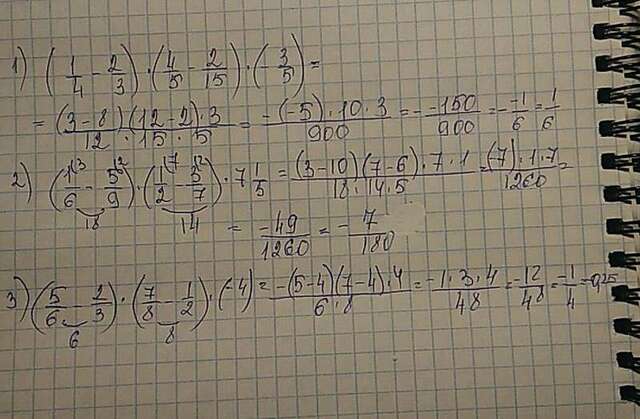 1) (1/4 - 2/3) · (4/5 - 2/15) · (-3/5) =
= (3-8)(12-2)·3/12·15·5 = -(-5)·10·3/900 = - -150/900 = - -1/6 = 1/6
2) (1^3/6 - 5^2/9) · (1^7/2 - 3^2/7) · 7 1/5 = (3-10)(7-6)·7·1/18·14·5 = (7)·1·7/1260 =
18 14 = -49/1260 = -7/180
3) (5/6 - 2/3) · (7/8 - 1/2) · (-4) = -(5-4)(7-4)·4/6·8 = -1·3·4/48 = -12/48 = -1/4 = 0,25
6 8